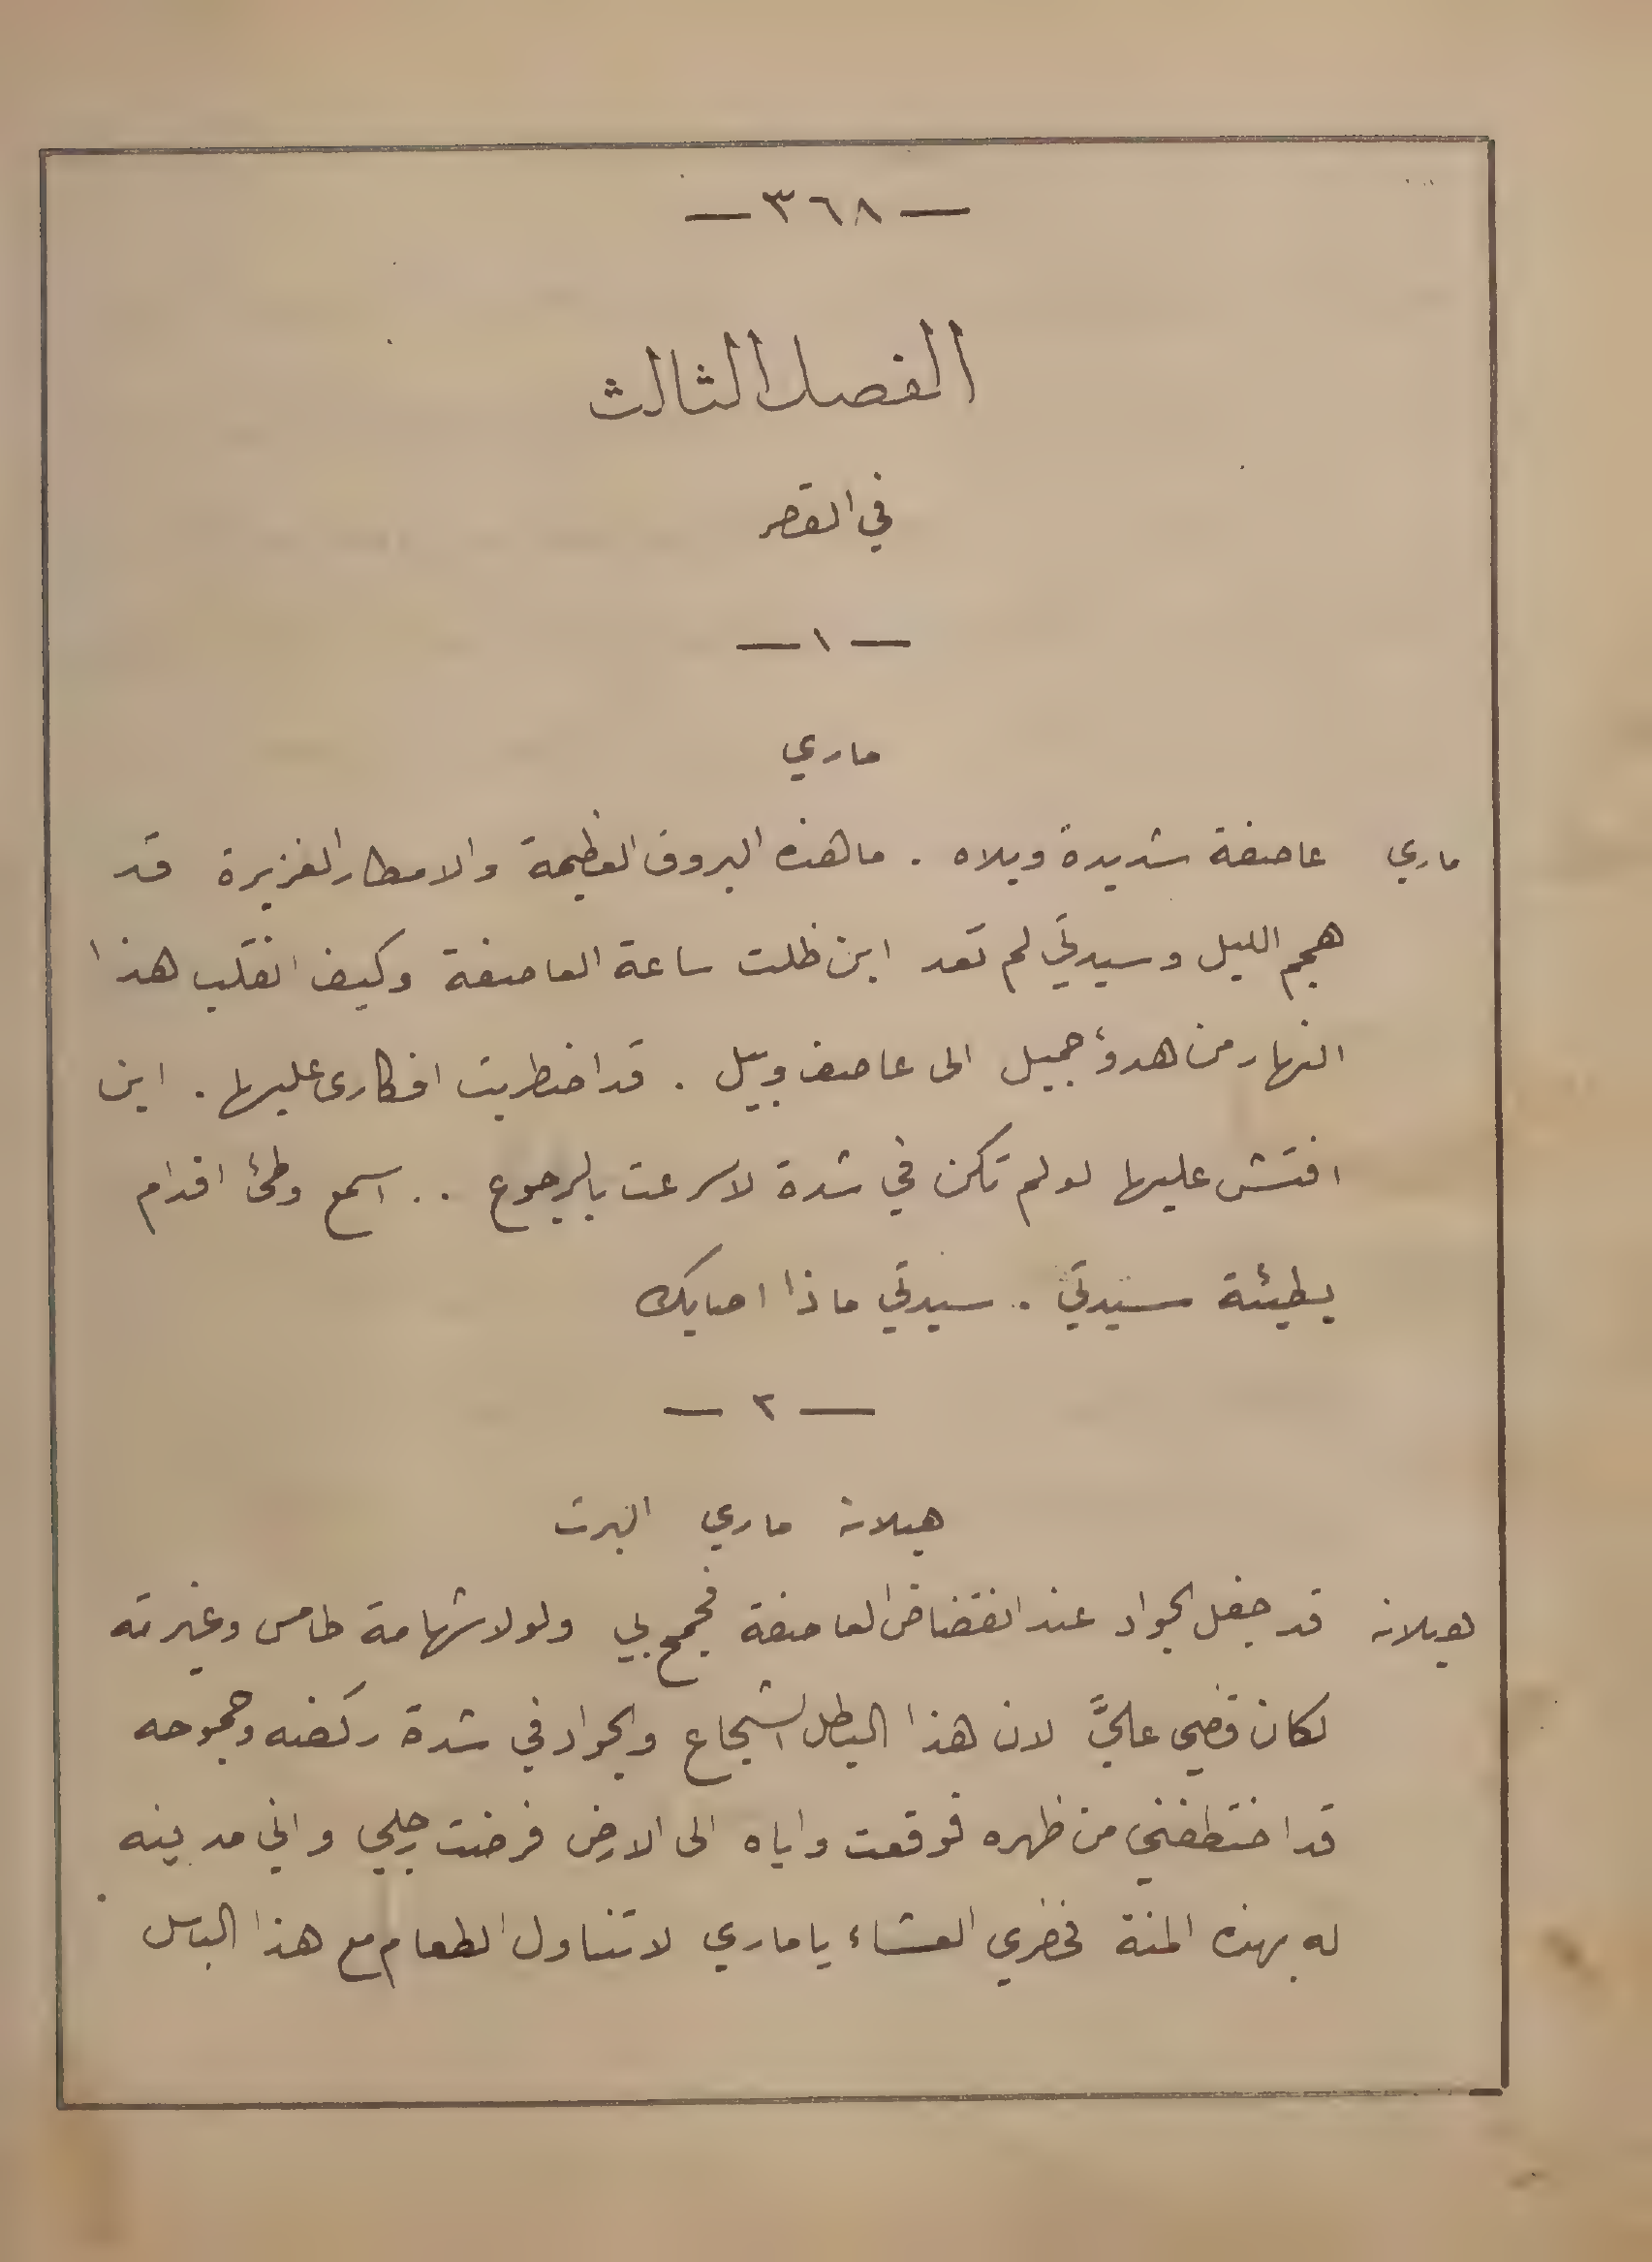 — ٣٦٨ —
الفصل الثالث
في القصر
— ١ —
ماري
ماري عاصفة شديدة ويلاه . ما هذه البروق العظيمة والامطار الغزيرة قد
هجم الليل وسيدتي لم تعد اين ظلت ساعة العاصفة وكيف انقلب هذا
النهار من هدؤ جميل الى عاصف وبيل . قد اضطربت افكارى عليها . اين
افتش عليها لو لم تكن في شدة لاسرعت بالرجوع . . اسمع وطئ اقدام
بطيئة سيدتي . سيدتي ماذا اصابك
— ٢ —
هيلانه ماري البرت
هيلانه قد جفل الجواد عند انقضاض العاصفة فجمح بي ولولا شهامة طامس وغيرته
لكان قضي عليَّ لان هذا البطل الشجاع والجواد في شدة ركضه وجموحه
قد اختطفني من ظهره فوقعت واياه الى الارض فرضت رجلي واني مدينه
له بهذه المنة فحضري العشاء يا ماري لاتناول الطعام مع هذا الباسل